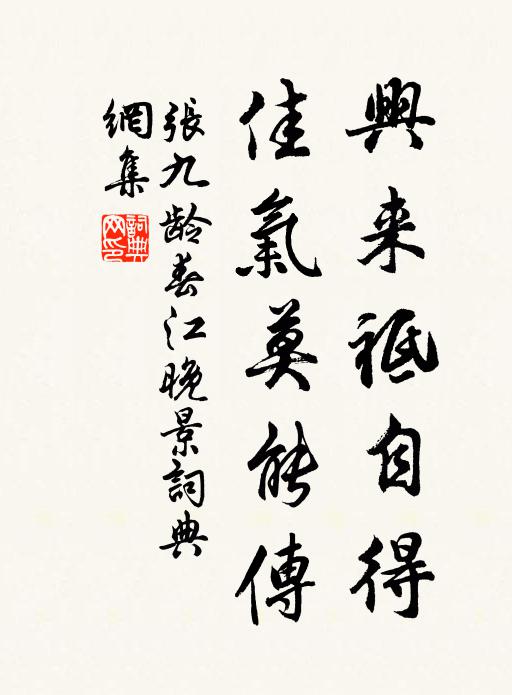 興来祗自得
佳氣莫能傳
張九龄春江晚景詞典
網集
詞典网印